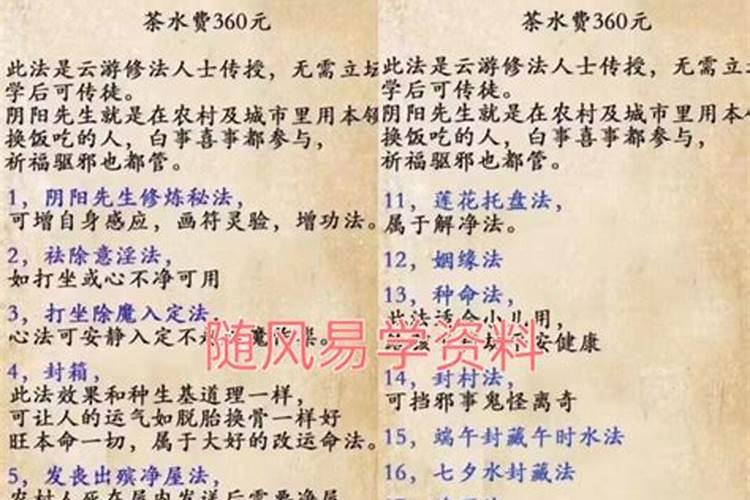 茶水费360元
此法是云游修法人士传授，无需立坛
学后可传徒。
阴阳先生就是在农村及城市里用本领
换饭吃的人，白事喜事都参与，
祈福驱邪也都管。
1，阴阳先生修炼秘法，
可增自身感应，画符灵验，增功法。
2，祛除意淫法，
如打坐或心不净可用
3，打坐除魔入定法，
心法可安静入定不
4，封箱，
此法效果和种生基道理一样，
可让人的运气如脱胎换骨一样好
旺本命一切，属于大好的改运命法。
5，发丧出殡净屋法，
农村人死在屋内发送后需要净屋
茶水费360元
此法是云游修法人士传授，无需立
学后可传徒。
阴阳先生就是在农村及城市里用本
换饭吃的人，白事喜事都参与，
祈福驱邪也都管。
11，莲花托盘法，
属于解净法。
12，姻缘法
13，种命法，
此法适合小儿用，
安健康
14，封村法，
可挡邪事鬼怪离奇
15，端午封藏午时水法
16，七夕水封藏法
随风易学资料